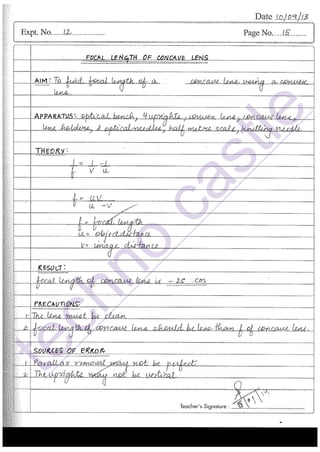 Date 10/09/13
Expt. No. 12
Page No. 15
FOCAL LENGTH OF CONCAVE LENS
AIM: To find focal length of a concave lens using a convex
lens.
APPARATUS: optical bench, 4 uprights, convex lens, concave lens,
lens holders, 2 optical needles, half metre scale, knitting needle
THEORY:
1/f = 1/v - 1/u
f = uv / u - v
f = focal length
u = object distance
v = image distance
RESULT:
focal length of concave lens is - 20 cm
PRECAUTIONS:
1. The lens must be clean.
2. focal length of concave lens should be less than f of concave lens.
SOURCES OF ERROR
1. Parallax removal may not be perfect
2. The uprights may not be vertical.
Teacher's Signature :
techno castle